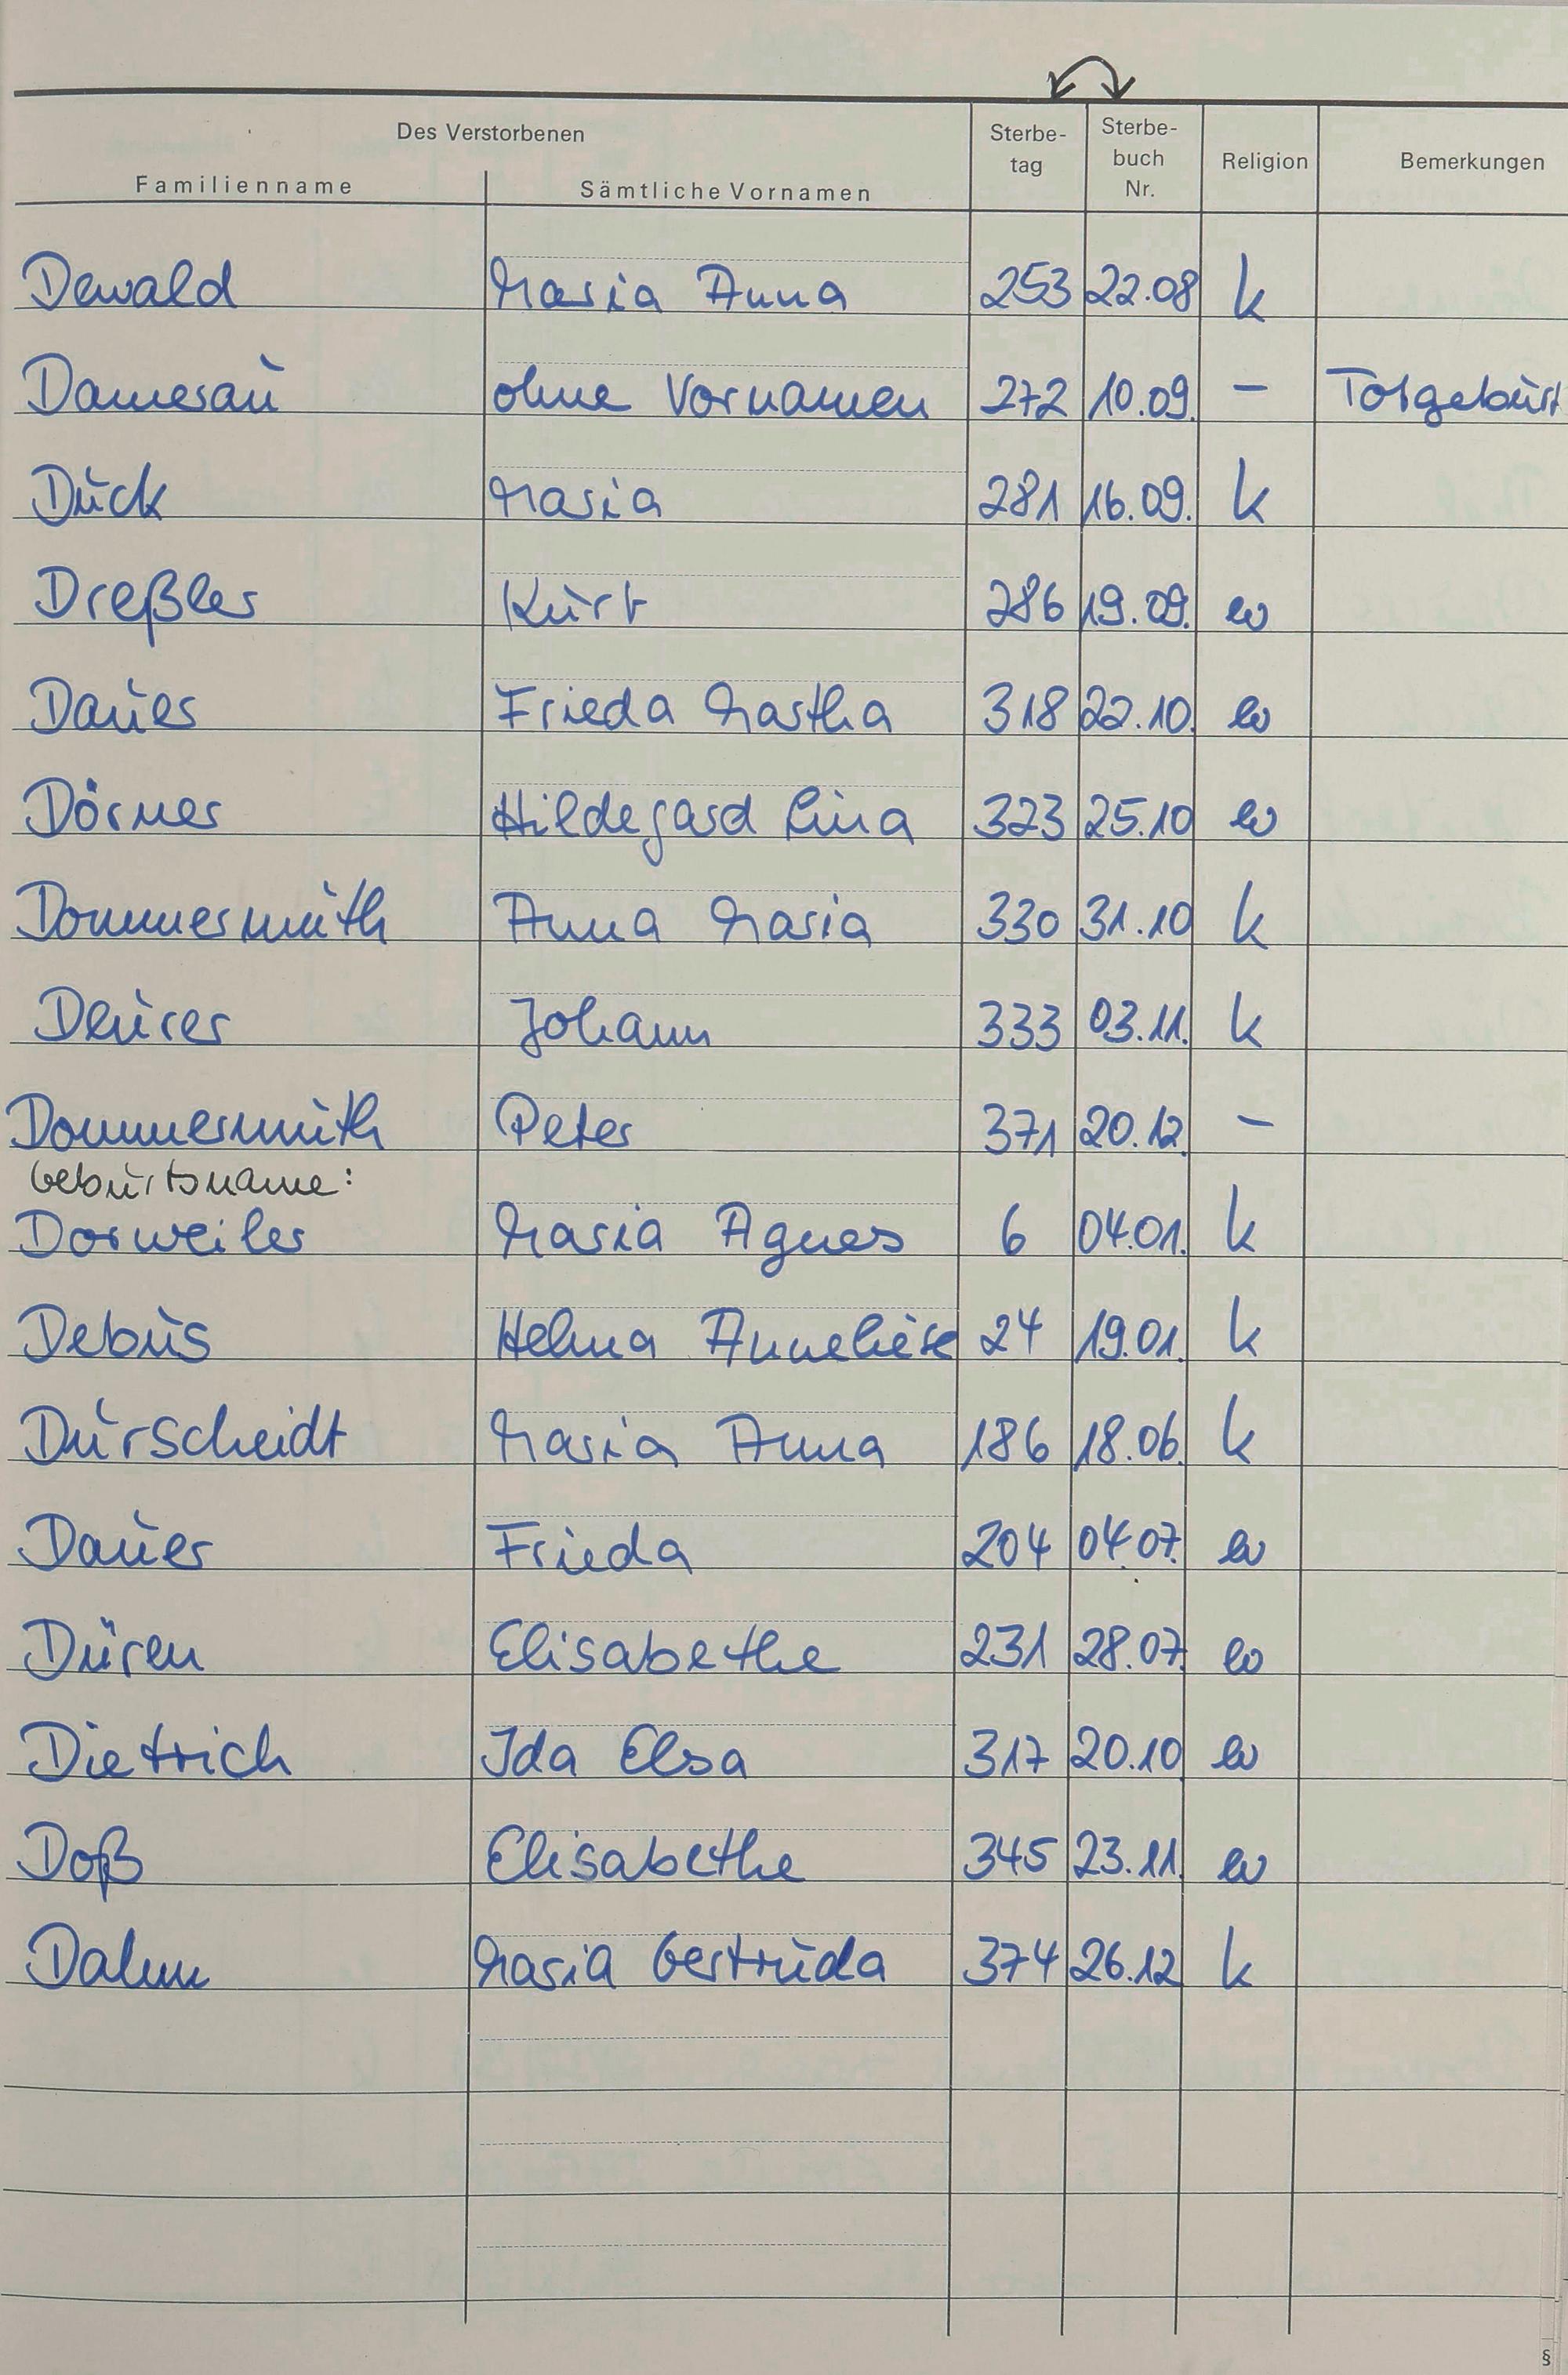 Des Verstorbenen
Familienname Sämtliche Vornamen Sterbe-tag Sterbe-buch Nr. Religion Bemerkungen
Dewald Maria Anna 253 22.08 k
Damerau ohne Vornamen 272 10.09. – Totgeburt
Duck Maria 281 16.09. k
Dreßler Kurt 286 19.09. ev
Dauer Frieda Martha 318 22.10. ev
Dörner Hildegard Lina 323 25.10 ev
Dommermuth Anna Maria 330 31.10 k
Deurer Johann 333 03.11. k
Dommermuth Peter 371 20.12. –
Geburtsname:
Dorweiler Maria Agnes 6 04.01. k
Debus Helma Anneliese 24 19.01. k
Durscheidt Maria Anna 186 18.06. k
Dauer Frieda 204 04.07. ev
Düren Elisabethe 231 28.07. ev
Dietrich Ida Elsa 317 20.10. ev
Doß Elisabethe 345 23.11. ev
Dahm Maria Gertruda 374 26.12 k
§